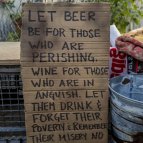 LET BEER
BE FOR THOSE
WHO ARE
PERISHING.
WINE FOR THOSE
WHO ARE IN
ANGUISH. LET
THEM DRINK &
FORGET THEIR
POVERTY & REMEMBER
THEIR MISERY NO